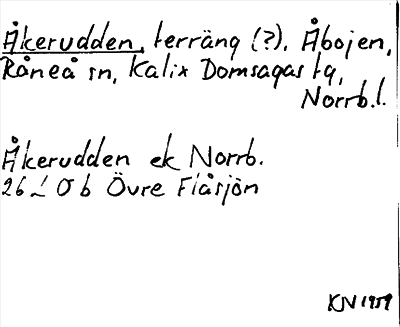 Åkerudden, terräng (?), Åbojen,
Råneå sn, Kalix Domsagas tg,
Norrb.l.
Åkerudden ek Norrb.
26 L 0 b Övre Flåsjön
KN 1959